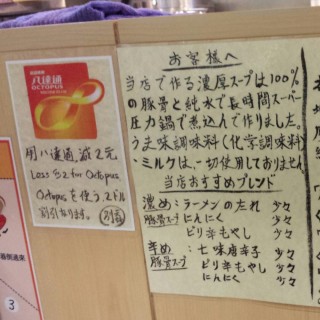 八達通
OCTOPUS
用八達通,減2元
Less $2 for Octopus
Octopusを使う、2ドル
割引なります。
お客様へ
当店で作る濃厚スープは100%
の豚骨と純水で長時間スーパー
圧力鍋で煮込んで作りました。
うま味調味料(化学調味料)
・ミルクは、一切使用しておりません
当店おすすめブレンド
濃め:ラーメンのたれ 少々
豚骨スープ にんにく 少々
ピリ辛もやし 少々
辛め:七味唐辛子 少々
豚骨スープ ピリ辛もやし 少々
にんにく 少々
3